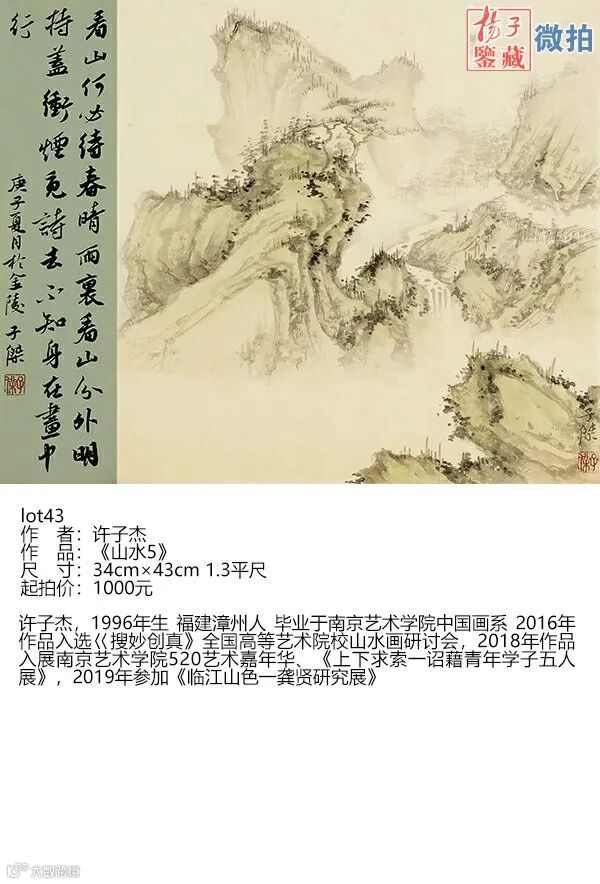 看山何必待春晴雨裏看山分外明
持蓋衝煙覓詩去不知身在畫中
行
庚子夏月於金陵子傑
揚子
鑒藏
微拍
子傑
lot43
作 者：许子杰
作 品：《山水5》
尺 寸：34cm×43cm 1.3平尺
起拍价：1000元
许子杰，1996年生 福建漳州人 毕业于南京艺术学院中国画系 2016年
作品入选《搜妙创真》全国高等艺术院校山水画研讨会，2018年作品
入展南京艺术学院520艺术嘉年华、《上下求索一诏藉青年学子五人
展》，2019年参加《临江山色一龚贤研究展》